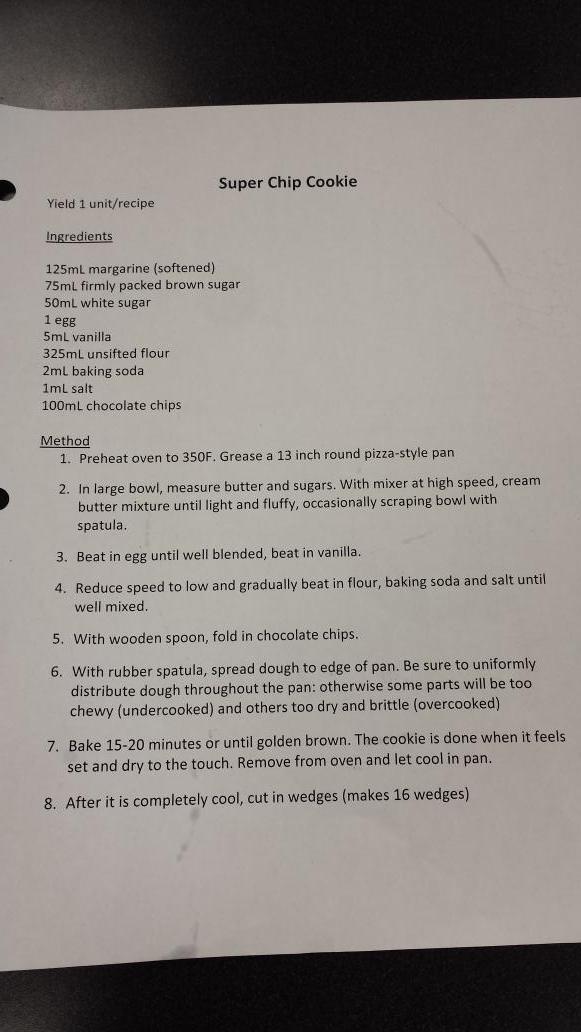 Super Chip Cookie
Yield 1 unit/recipe
Ingredients
125mL margarine (softened)
75mL firmly packed brown sugar
50mL white sugar
1 egg
5mL vanilla
325mL unsifted flour
2mL baking soda
1mL salt
100mL chocolate chips
Method
1. Preheat oven to 350F. Grease a 13 inch round pizza-style pan
2. In large bowl, measure butter and sugars. With mixer at high speed, cream
butter mixture until light and fluffy, occasionally scraping bowl with
spatula.
3. Beat in egg until well blended, beat in vanilla.
4. Reduce speed to low and gradually beat in flour, baking soda and salt until
well mixed.
5. With wooden spoon, fold in chocolate chips.
6. With rubber spatula, spread dough to edge of pan. Be sure to uniformly
distribute dough throughout the pan: otherwise some parts will be too
chewy (undercooked) and others too dry and brittle (overcooked)
7. Bake 15-20 minutes or until golden brown. The cookie is done when it feels
set and dry to the touch. Remove from oven and let cool in pan.
8. After it is completely cool, cut in wedges (makes 16 wedges)